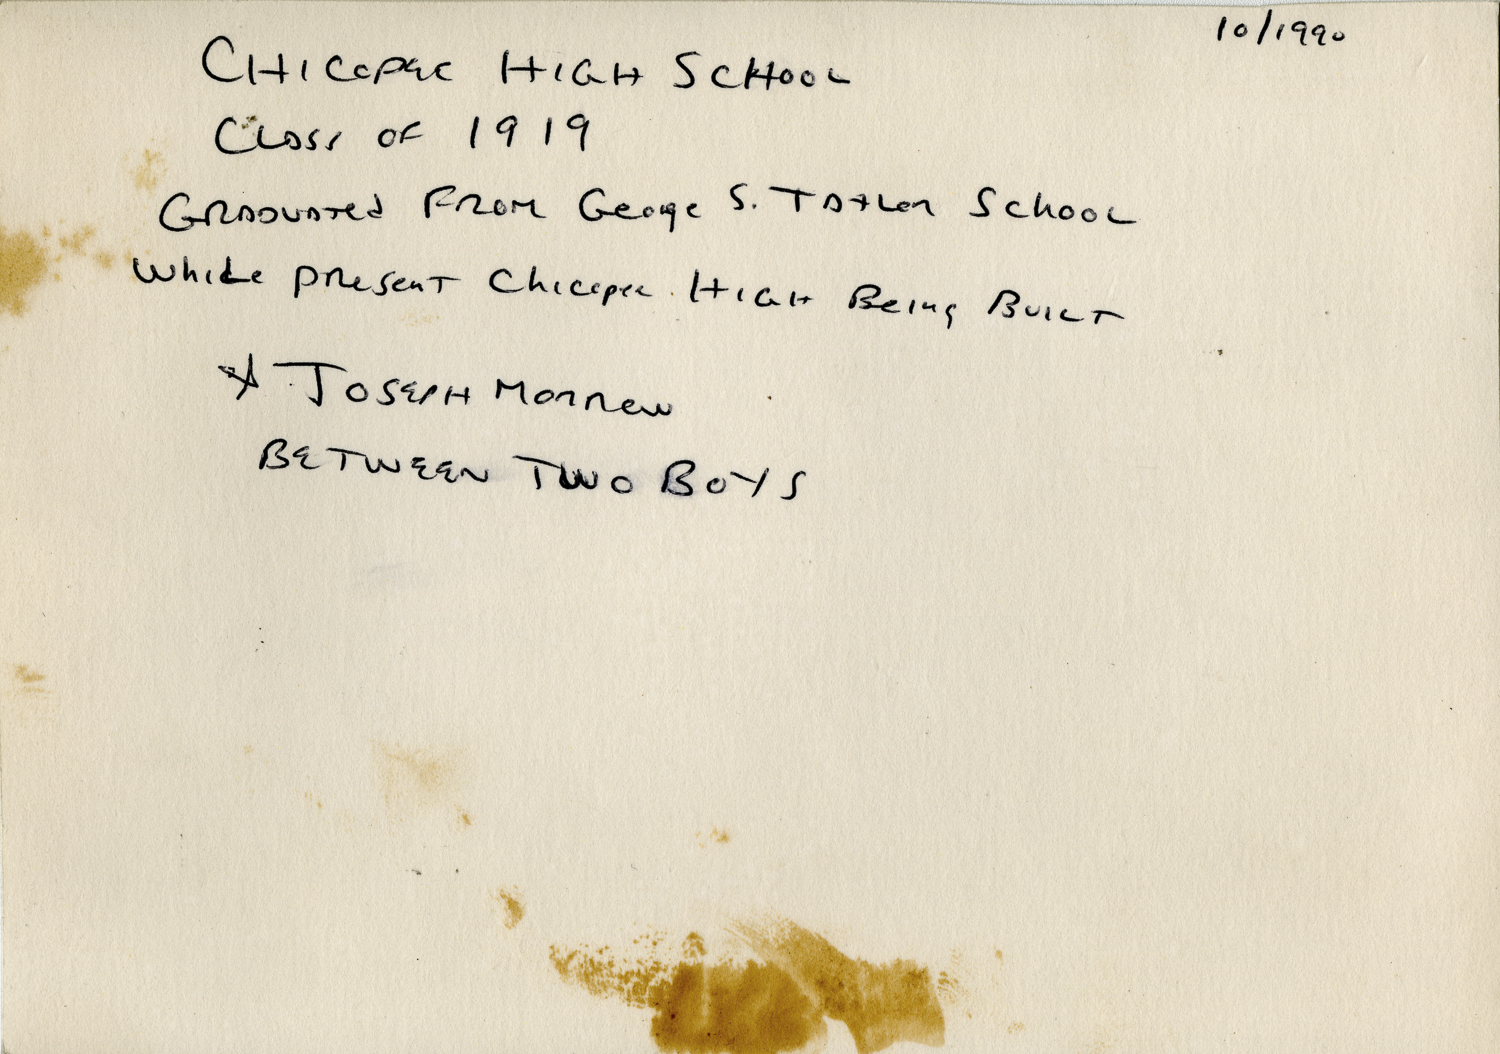 10/1990
CHICOPEE HIGH SCHOOL
CLASS OF 1919
GRADUATED FROM George S. TAYLOR SCHOOL
While present Chicopee HIGH Being BUILT
* JOSEPH MORREW
BETWEEN TWO BOYS